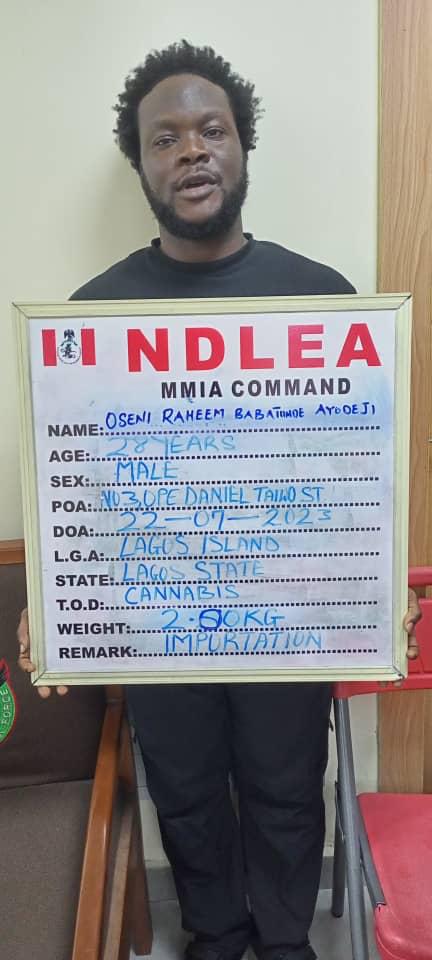 NDLEA
MMIA COMMAND
NAME: OSENI RAHEEM BABATUNDE AYODEJI
AGE: 28 YEARS
SEX: MALE
POA: NO 3, OPE DANIEL TAIWO ST
DOA: 22-07-2023
L.G.A: LAGOS ISLAND
STATE: LAGOS STATE
T.O.D: CANNABIS
WEIGHT: 2.00KG
REMARK: IMPORTATION
FORCE